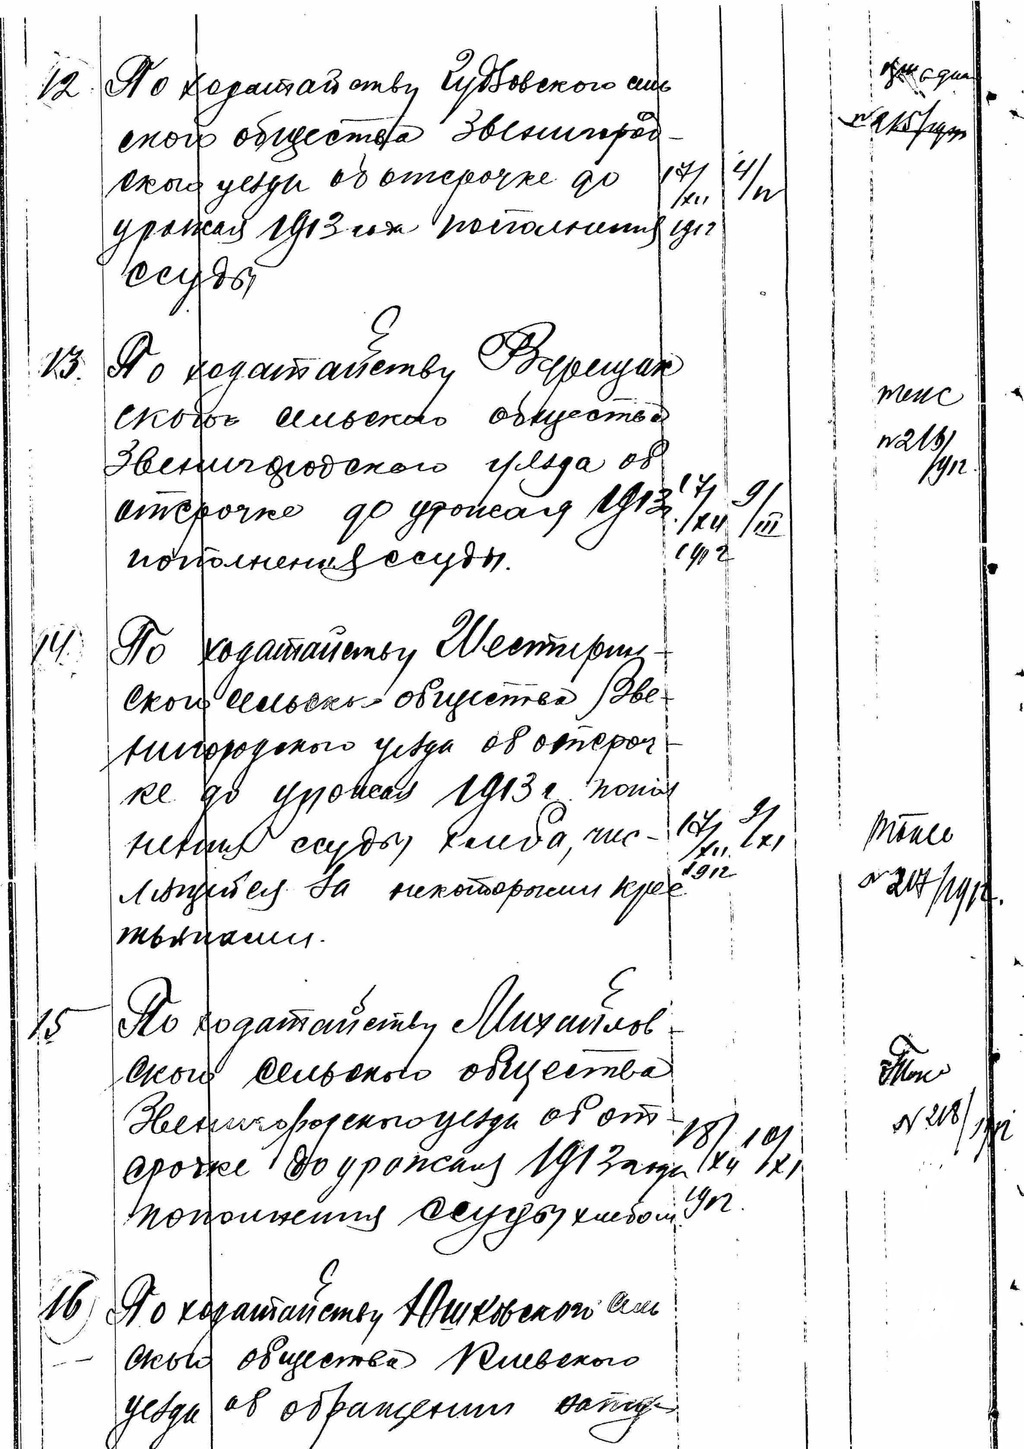 12. По ходатайству Гудзовского сель
ского общества Звенигород-
ского уезда об отсрочке до 17/XII 4/IV
урожая 1913 года пополнения 1912
ссуды
№ 215/1912
13. По ходатайству Верещак
ского сельского общества
Звенигородского уезда об
отсрочке до урожая 1913 г. 17/XII 9/III
пополнения ссуды. 1912
тоже
№ 216/1912
14. По ходатайству Шестерин-
ского сельского общества Зве-
нигородского уезда об отсроч-
ке до урожая 1913 г. попол
нения ссуды хлеба, чис- 17/XII 9/XI
лящейся за некоторыми крес 1912
тьянами.
тоже
№ 217/1912.
15 По ходатайству Михайлов-
ского сельского общества
Звенигородского уезда об от-
срочке до урожая 1913 года 18/XII 10/XI
пополнения ссуды хлебом 1912.
Тоже
№ 218/1912
16 По ходатайству Юшковского сель
ского общества Киевского
уезда об обращении